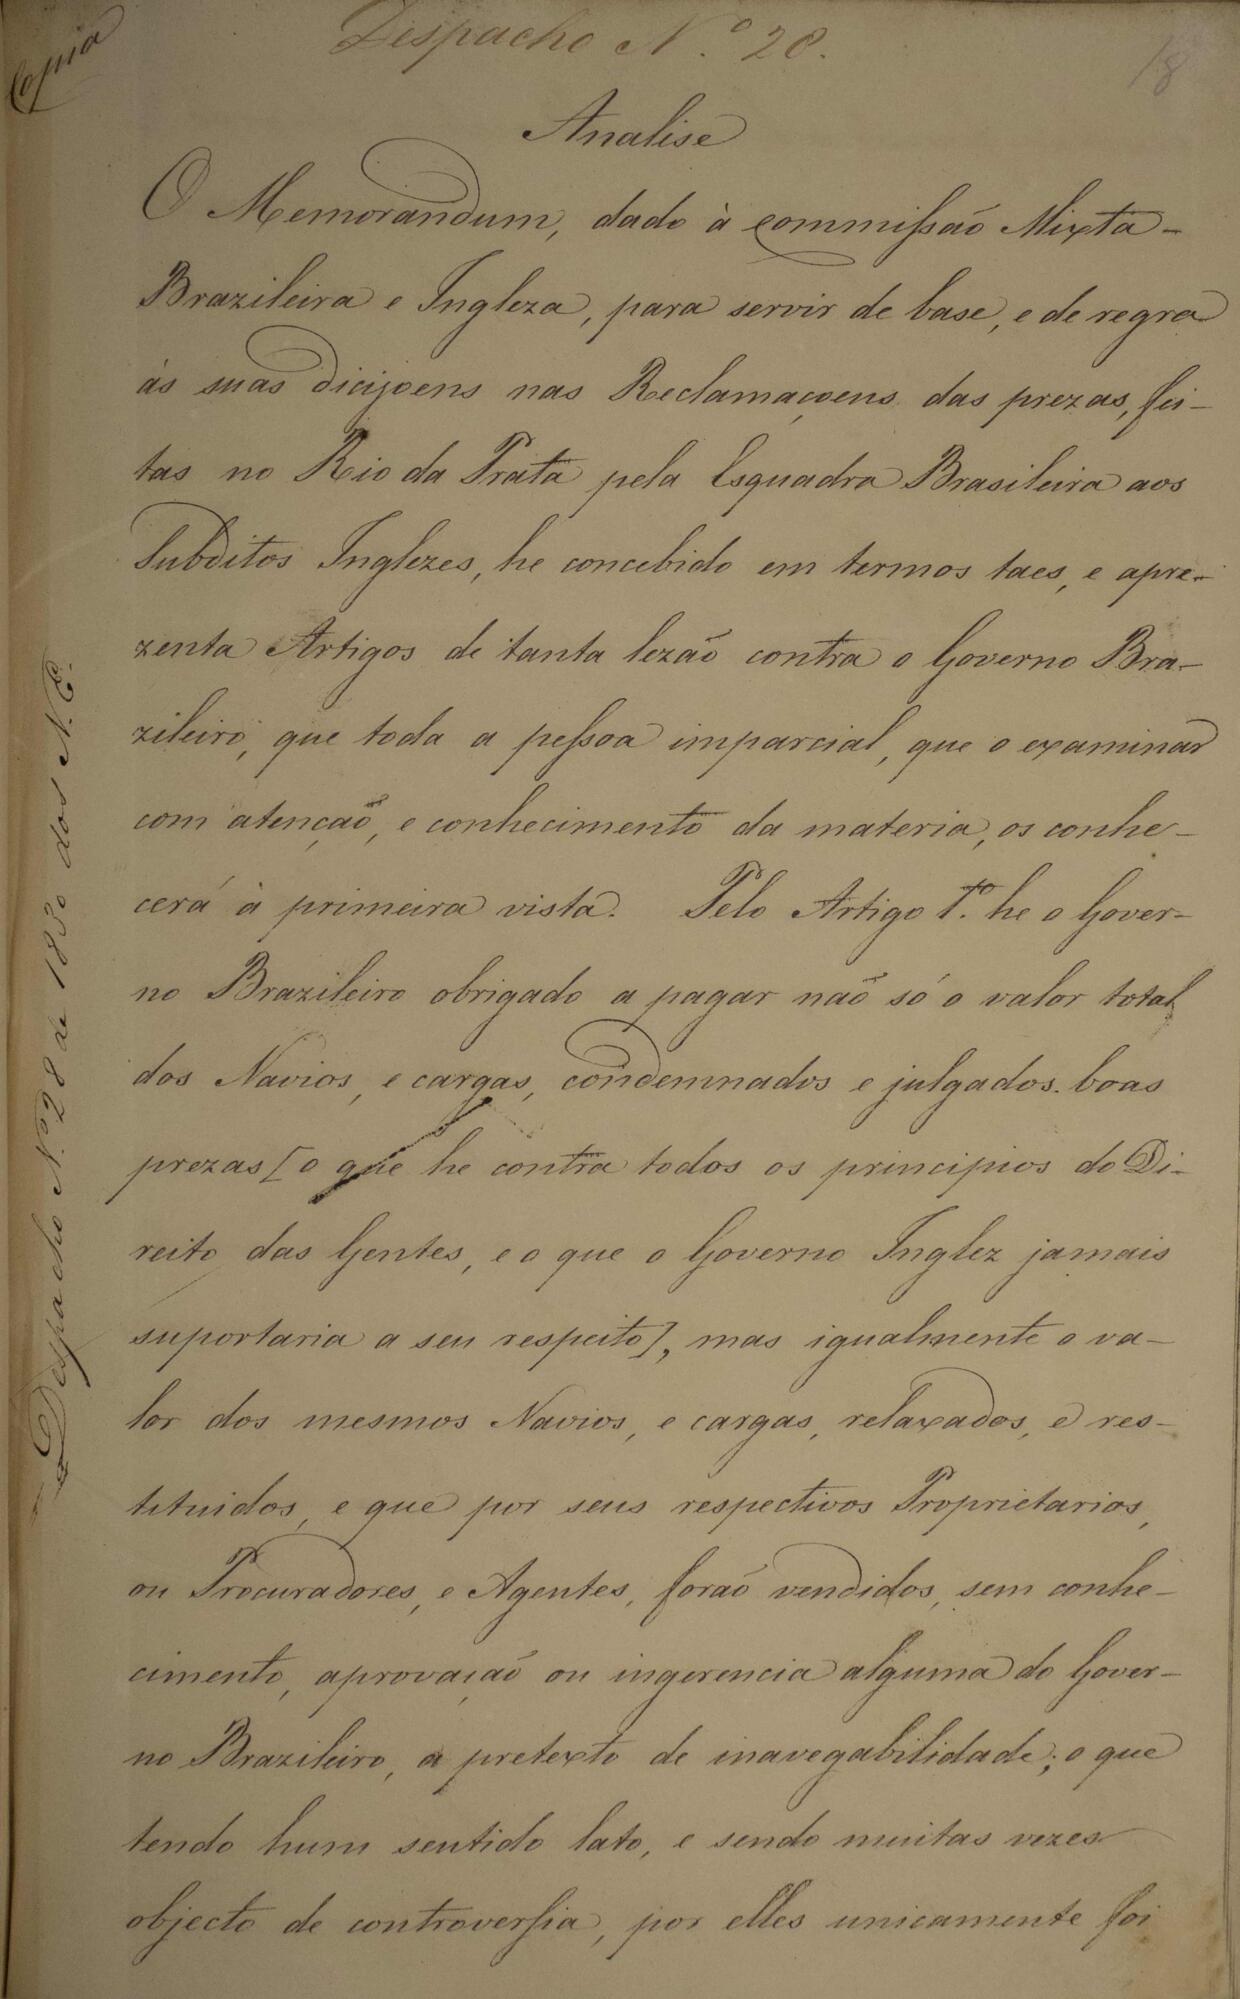 Copia
Despacho N.º 28.
18
Analise
O Memorandum, dado à commissão Mixta-
Brazileira e Ingleza, para servir de base, e de regra
ás suas dicizoens nas Reclamaçoens das prezas, fei-
tas no Rio da Prata pela Esquadra Brasileira aos
Subditos Inglezes, he concebido em termos taes, e apre-
zenta Artigos de tanta lezão contra o Governo Bra-
zileiro, que toda a pessoa imparcial, que o examinar
com atenção, e conhecimento da materia, os conhe-
cerá à primeira vista. Pelo Artigo 1.º he o Gover-
no Brazileiro obrigado a pagar não só o valor total
dos Navios, e cargas, condemnados e julgados boas
prezas [o que he contra todos os principios do Di-
reito das Gentes, e o que o Governo Inglez jamais
suportaria a seu respeito], mas igualmente o va-
lor dos mesmos Navios, e cargas, relaxados, e res-
tituidos, e que por seus respectivos Proprietarios,
ou Procuradores, e Agentes, forão vendidos, sem conhe-
cimento, aprovação ou ingerencia alguma do Gover-
no Brazileiro, a pretexto de inavegabilidade; o que
tendo hum sentido lato, e sendo muitas vezes
objecto de controversia, por elles unicamente foi
Despacho N.º 28 de 1830 dos N. E.